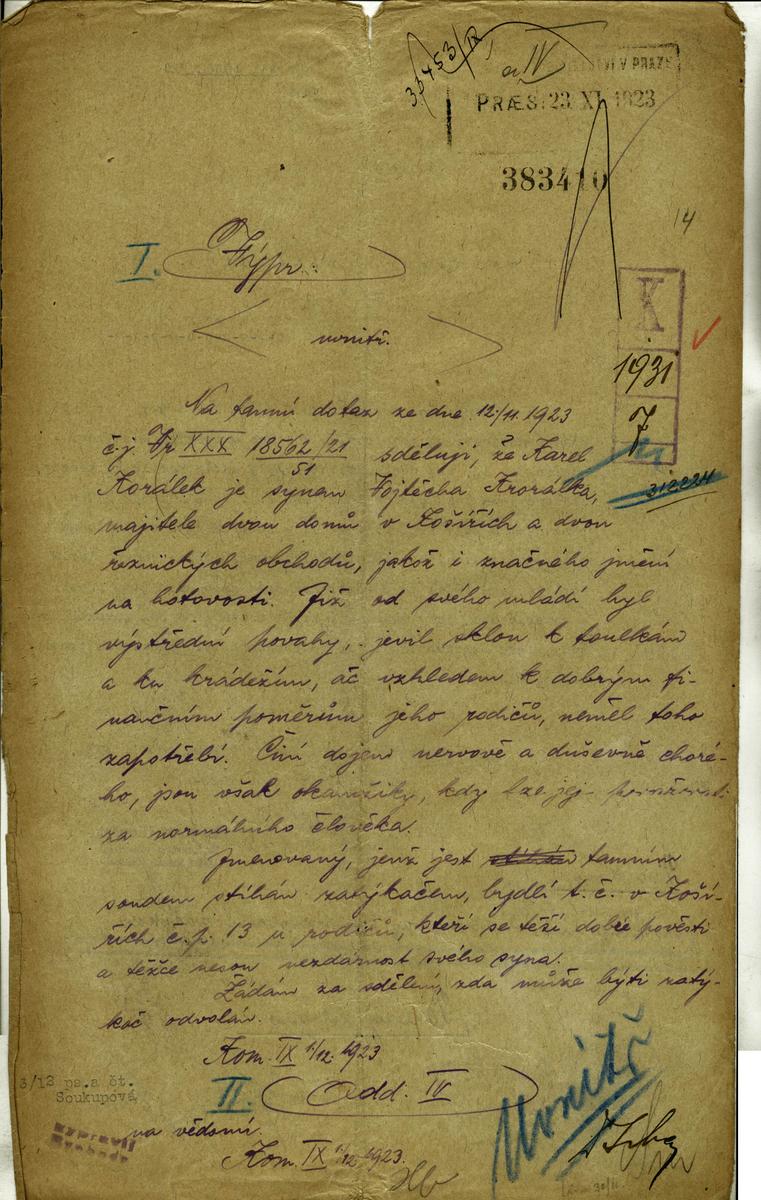 33453/IX
IV
V PRAZE
PRÆS. 23 XI. 1923
383410
14
I. Výpr.:
K
1931
7
uvnitř.
Na tamní dotaz ze dne 12./11. 1923
č.j. Vr XXX 18562/21 sděluji, že Karel
51
312224
Korálek je synem Vojtěcha Krorálka,
majitele dvou domů v Košířích a dvou
řeznických obchodů, jakož i značného jmění
na hotovosti. Již od svého mládí byl
výstřední povahy, jevil sklon k toulkám
a ku krádežím, ač vzhledem k dobrým fi-
nančním poměrům jeho rodičů, neměl toho
zapotřebí. Činí dojem nervově a duševně choré-
ho, jsou však okamžiky, kdy lze jej považovati
za normálního člověka.
Jmenovaný, jenž jest tamním
soudem stíhán zatýkačem, bydlí t.č. v Koší-
řích č.p. 13 u rodičů, kteří se těší dobré pověsti
a těžce nesou nezdárnost svého syna.
Žádám za sdělení, zda může býti zatý-
kač odvolán.
Kom. IX 1/12. 1923
II. Odd. IV
Uvnitř
3/12 ps. a čt.
Soukupová
na vědomí.
Vypravil
Svoboda
Kom. IX 1/12 1923.